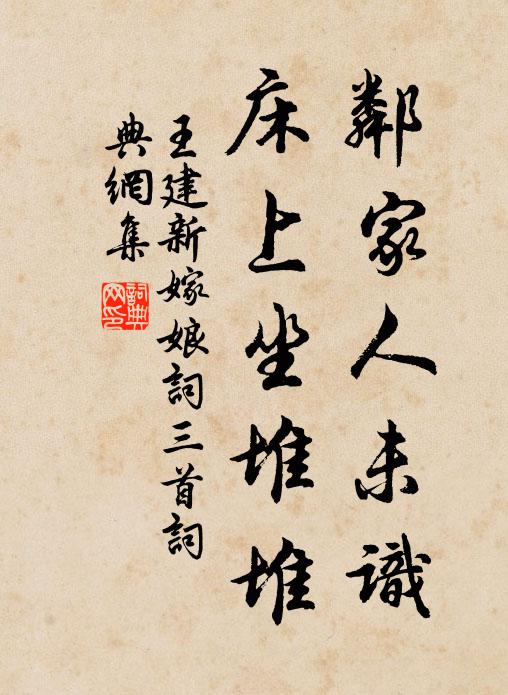 鄰家人未識
床上坐堆堆
王建新嫁娘詞三首詞
典網集
詞典網印